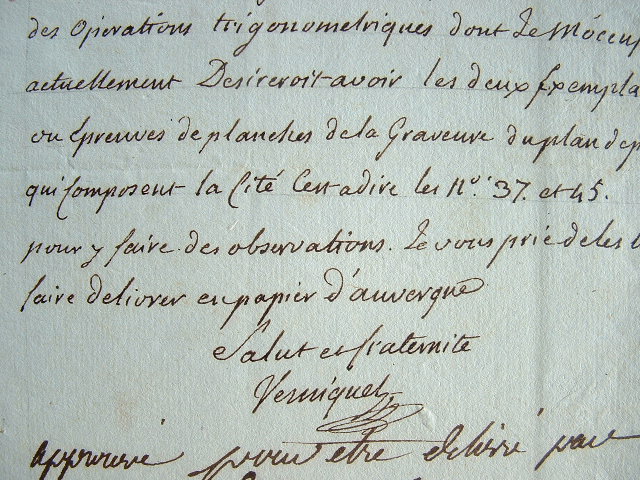 des Operations trigonometriques dont Je Móccup
actuellement Desireroit avoir les deux Exempla
ou Epreuves de planches de la Graveure du plan de p
qui Composent la Cité Cest adire les Nos. 37. et 45.
pour y faire des observations. Je vous prie de les
faire delivrer en papier d'auvergne
Salut et fraternite
Verniquet
approuvé pour etre delivré par